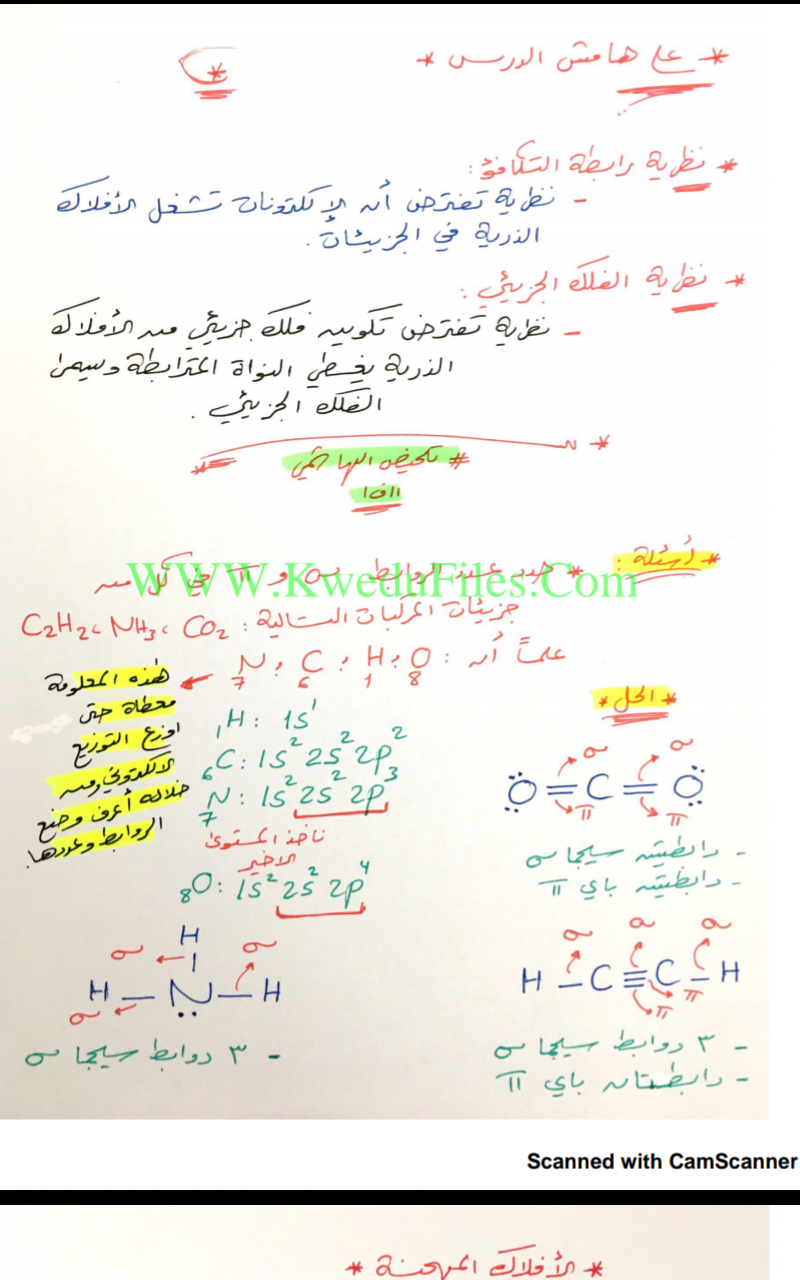 * على هامش الدرس *
* نظرية رابطة التكافؤ :
- نظرية تفترض أن الإلكترونات تشغل الأفلاك
الذرية في الجزيئات .
* نظرية الفلك الجزيئي :
- نظرية تفترض تكوين فلك جزيئي من الأفلاك
الذرية يغطي النواة المترابطة وسيمى
الفلك الجزيئي .
# تلخيص الهاشمي #
١١ف١
* أسئلة : * حدد عدد لروابط σ و π في كل من
WWW.KweduFiles.Com
جزيئات المركبات التالية : CO2 ، NH3 ، C2H2
علماً أن : 8O ، 1H ، 6C ، 7N
هذه المعلومة
معطاة حتى
اوزع التوزيع
الالكتروني ومن
خلاله أعرف وضع
الروابط وعددها.
1H : 1s¹
6C : 1s² 2s² 2p²
7N : 1s² 2s² 2p³
ناخذ المستوى
الاخير
8O : 1s² 2s² 2p⁴
* الحل *
σ σ
O = C = O
π π
- رابطتين سيجما σ
- رابطتين باي π
σ σ σ
H – C ≡ C – H
π π
- ٣ روابط سيجما σ
- رابطتان باي π
H
σ σ
H – N – H
σ
- ٣ روابط سيجما σ
Scanned with CamScanner
* الأفلاك المهجنة *